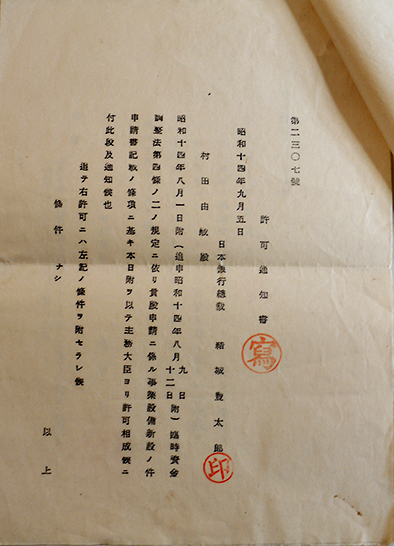 第二三〇七號
許可通知書
寫
昭和十四年九月五日
日本銀行總裁 結城豊太郎
印
村田由敏殿
昭和十四年八月一日附(追申昭和十四年八月九日十二日附)臨時資金
調整法第四條ノ二ノ規定ニ依リ貴殿申請ニ係ル事業設備新設ノ件
申請書記載ノ條項ニ基キ本日附ヲ以テ主務大臣ヨリ許可相成候ニ
付此段及通知候也
追テ右許可ニハ左記ノ條件ヲ附セラレ候
條件 ナシ
以上